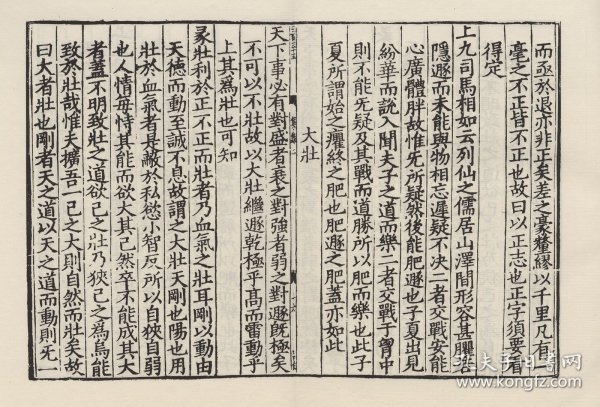 而亟於退亦非正矣差之豪氂繆以千里凡有一
毫之不正皆不正也故曰以正志也正字須要看
得定
上九司馬相如云列仙之儒居山澤間形容甚臞
隱遯而未能與物相忘遲疑不决二者交戰安能
心廣體胖故惟无所疑然後能肥遯也子夏出見
紛華而說入聞夫子之道而樂二者交戰于胷中
則不能无疑及其戰而道勝所以肥而樂也此子
夏所謂始之臞終之肥也肥遯之肥蓋亦如此
大壯
天下事必有對盛者衰之對強者弱之對遯旣極矣
不可以不壯故以大壯繼遯乾極乎高而雷動乎
上其爲壯也可知
彖壯利於正不正而壯者乃血氣之壯耳剛以動由
天德而動至誠不息故謂之大壯天剛也陽也用
壯於血氣者是蔽於私慾小智反所以自狹自弱
也人情毋恃其能而欲大其己然卒不能成其大
者蓋不明致壯之道欲己之壯乃狹己之爲烏能
致於壯哉惟夫擴吾一己之大則自然而壯矣故
曰大者壯也剛者天之道以天之道而動則无一
孔夫子旧书网
www.kongfz.com